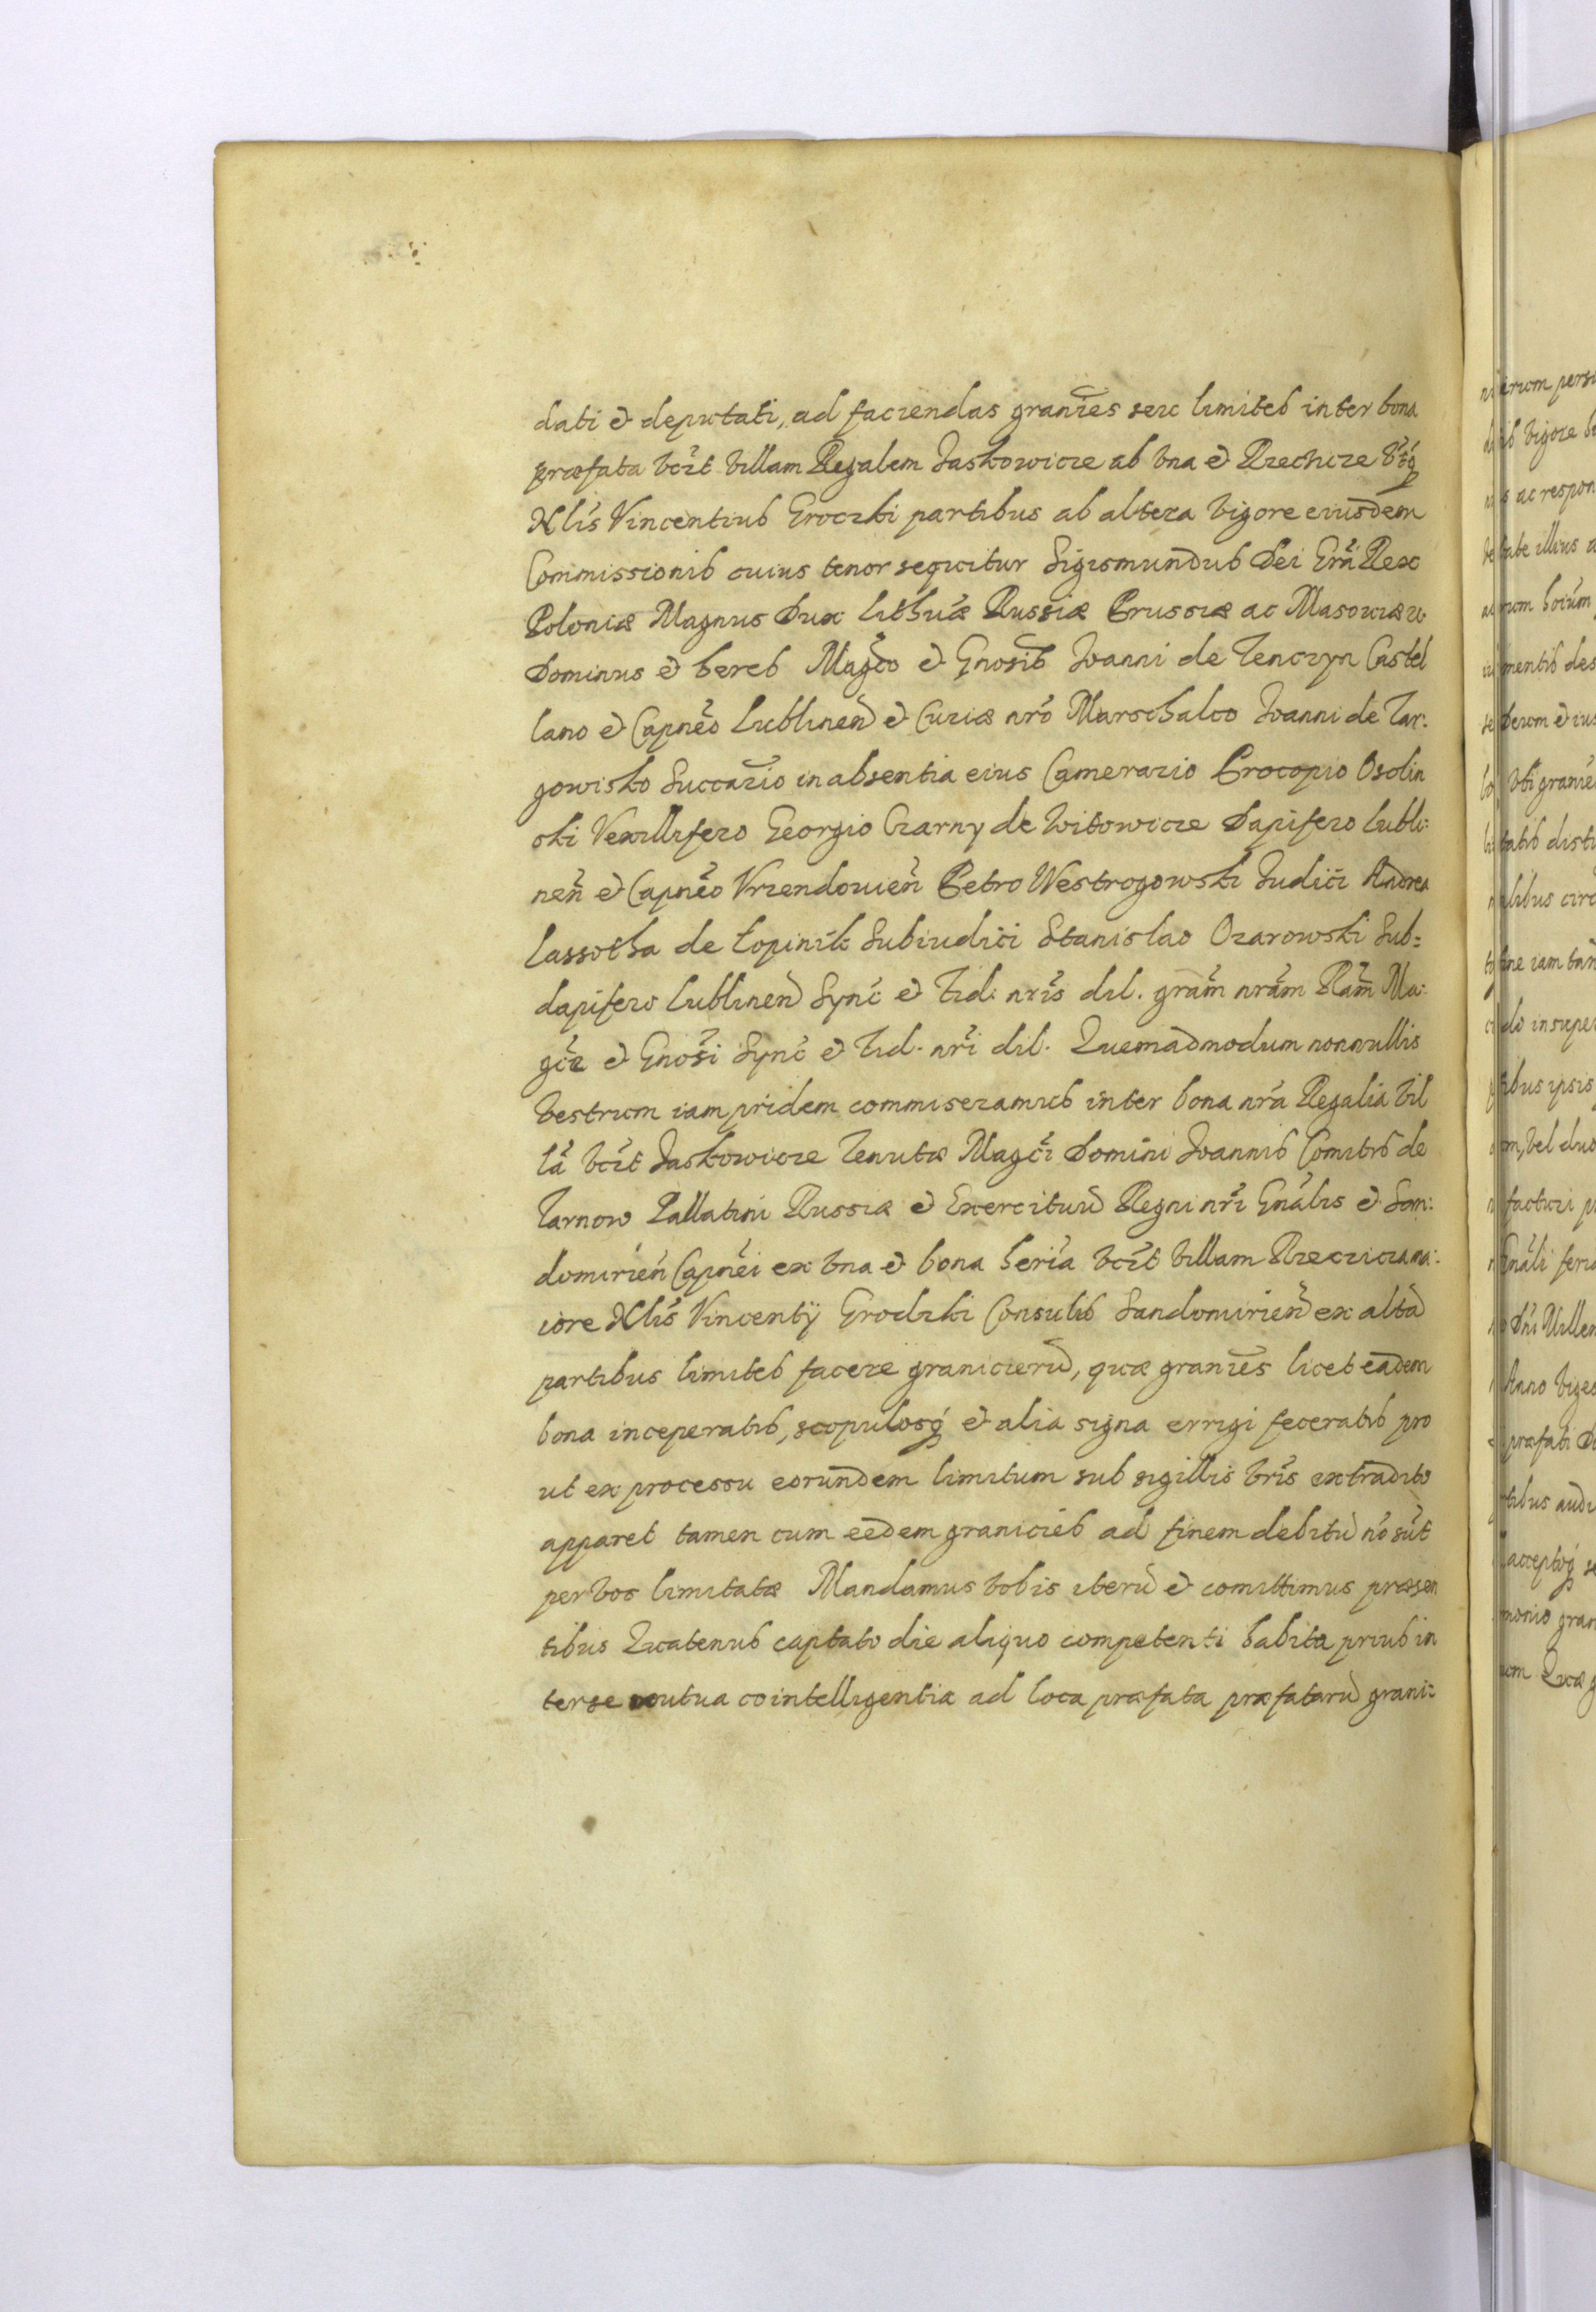 dati et deputati, ad faciendas granies seu limites inter bona
præfata vczt villam Regalem Jaskowicze ab vna et Rzechcze vtrq
Nlis Vincentius Groczki partibus ab altera vigore eiusdem
Commissionis cuius tenor sequitur Sigismundus Dei Grã Rex
Poloniæ Magnus Dux Lithuæ Russiæ Prussiæ ac Masouiæ
Dominus et heres Magco et Gnosis Joanni de Tenczyn Castel
lano et Capneo Lublinen et Curiæ nro Marschalco Joanni de Tar:
gowisko Succario in absentia eius Camerario Procopio Osolin
ski Vexillifero Georgio Czarny de Witowicze Dapifero Lubli:
nen et Capneo Vrzendouien Petro Westrogowski Judici Andrea
Lassotha de Łopinik Subiudici Stanislao Ozarowski Sub=
dapifero Lublinen Sync et Fid: nris dil. gram nram Ram Ma:
gce et Gnosi Sync et Fid. nri dil. Quemadmodum nonnullis
vestrum iam pridem commiseramus inter bona nra Regalia vil
la vczt Jaskowicze Tenutæ Magci Domini Joannis Comitis de
Tarnow Pallatini Russiæ et Exercituu Regni nri Gnalis et San:
domirien Capnei ex vna et bona heria vczt villam Rzecziczana:
iore Nlis Vincentÿ Grodzki Consulis Sandomirien ex alta
partibus limites facere granicierũ, quæ granies licet eadem
bona inceperatis, scopulosq et alia signa errigi feceratis pro
ut ex processu eorundem limitum sub sigillis vris extradito
apparet tamen cum eedem granicies ad finem debitũ nõ sũt
per vos limitatæ Mandamus vobis iterũ et comittimus præsen
tibus Quatenus captato die aliquo competenti habita prius in
ter se mutua cointelligentia ad loca præfata præfatarũ grani: